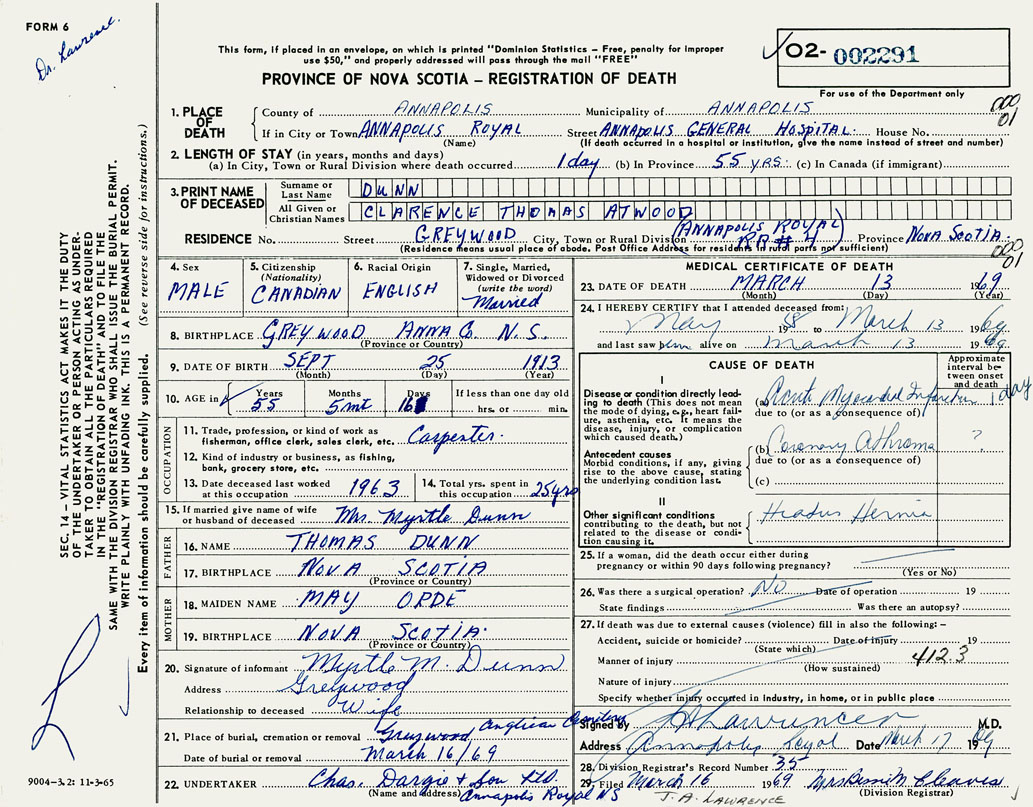 FORM 6
Dr. Lawrence.
This form, if placed in an envelope, on which is printed "Dominion Statistics – Free, penalty for improper
use $50," and properly addressed will pass through the mail "FREE"
PROVINCE OF NOVA SCOTIA – REGISTRATION OF DEATH
O2- 002291
For use of the Department only
SEC. 14 – VITAL STATISTICS ACT MAKES IT THE DUTY
OF THE UNDERTAKER OR PERSON ACTING AS UNDER-
TAKER TO OBTAIN ALL THE PARTICULARS REQUIRED
IN THE "REGISTRATION OF DEATH" AND TO FILE THE
SAME WITH THE DIVISION REGISTRAR WHO SHALL ISSUE THE BURIAL PERMIT.
WRITE PLAINLY WITH UNFADING INK. THIS IS A PERMANENT RECORD.
Every item of information should be carefully supplied. (See reverse side for instructions.)
1. PLACE OF DEATH
County of ANNAPOLIS Municipality of ANNAPOLIS
000
01
If in City or Town ANNAPOLIS ROYAL Street ANNAPOLIS GENERAL HOSPITAL. House No.
(Name) (If death occurred in a hospital or institution, give the name instead of street and number)
2. LENGTH OF STAY (in years, months and days)
(a) In City, Town or Rural Division where death occurred 1 day (b) In Province 55 YRS. (c) In Canada (if immigrant)
3. PRINT NAME OF DECEASED
Surname or Last Name DUNN
All Given or Christian Names CLARENCE THOMAS ATWOOD
RESIDENCE No. Street GREYWOOD City, Town or Rural Division (ANNAPOLIS ROYAL) RR # 4 Province NOVA SCOTIA.
(Residence means usual place of abode. Post Office Address for residents in rural parts not sufficient)
000
01
4. Sex MALE
5. Citizenship (Nationality) CANADIAN
6. Racial Origin ENGLISH
7. Single, Married, Widowed or Divorced (write the word) Married
8. BIRTHPLACE GREYWOOD ANNA Co. N.S.
(Province or Country)
9. DATE OF BIRTH SEPT 25 1913
(Month) (Day) (Year)
10. AGE in Years 55 Months 5 mt Days 16 If less than one day old
hrs. or min.
OCCUPATION
11. Trade, profession, or kind of work as
fisherman, office clerk, sales clerk, etc. Carpenter.
12. Kind of industry or business, as fishing,
bank, grocery store, etc.
13. Date deceased last worked at this occupation 1963
14. Total yrs. spent in this occupation 25 yrs
15. If married give name of wife
or husband of deceased Mrs. Myrtle Dunn
FATHER
16. NAME THOMAS DUNN
17. BIRTHPLACE NOVA SCOTIA
(Province or Country)
MOTHER
18. MAIDEN NAME MAY ORDE
19. BIRTHPLACE NOVA SCOTIA.
(Province or Country)
20. Signature of informant Myrtle M. Dunn
Address Greywood
Relationship to deceased Wife
21. Place of burial, cremation or removal Greywood Anglican Cemetery
Date of burial or removal March 16/69
22. UNDERTAKER Chas. Dargie & Son Ltd.
(Name and address) Annapolis Royal NS
9004-3.2: 11-3-65
MEDICAL CERTIFICATE OF DEATH
23. DATE OF DEATH MARCH 13 1969
(Month) (Day) (Year)
24. I HEREBY CERTIFY that I attended deceased from:
May to March 13 1969
and last saw him alive on March 13 1969
CAUSE OF DEATH
Approximate interval be-
tween onset
and death
I
Disease or condition directly lead-
ing to death (This does not mean
the mode of dying, e.g., heart fail-
ure, asthenia, etc. It means the
disease, injury, or complication
which caused death.)
(a) Acute Myocardial Infarction 1 day
due to (or as a consequence of)
Antecedent causes
Morbid conditions, if any, giving
rise to the above cause, stating
the underlying condition last.
(b) Coronary Atheroma ?
due to (or as a consequence of)
(c)
II
Other significant conditions
contributing to the death, but not
related to the disease or condi-
tion causing it.
Hiatus Hernia
25. If a woman, did the death occur either during
pregnancy or within 90 days following pregnancy?
(Yes or No)
26. Was there a surgical operation? NO Date of operation 19
State findings Was there an autopsy?
27. If death was due to external causes (violence) fill in also the following: –
Accident, suicide or homicide? Date of injury 19
(State which)
Manner of injury 412.3
(How sustained)
Nature of injury
Specify whether injury occurred in industry, in home, or in public place
Signed by JA Lawrence M.D.
Address Annapolis Royal Date March 17 1969
28. Division Registrar's Record Number 35
29. Filed March 16 1969
(Division Registrar)
J. A. LAWRENCE